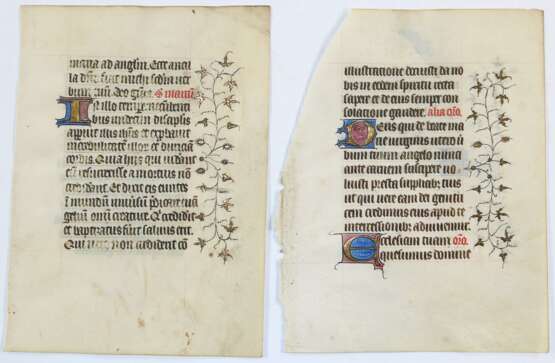 maria ad anglm. Ecce ancil
la dñi fiat michi scdm ver
bum tuū. Deo grās S marcū
In illo tempre recūbenti
bus undecim discipls
apparuit illis ihus et exprobaū
incredulitatē illor et duriciam
cordis. Quia hiis qui uiderāt
eū resurrexisse a mortuis non
crediderāt. Et dixit eis eūtes ī
mundum uniuersū predicate euan
gelium omī creature. Qui crediderit
et baptizatus fuerit saluus erit.
Qui vero non crediderit cō
illustratione docuisti da no
bis in eodem spiritu recta
sapere et de eius semper con
solatione gaudere. alia orō.
Deus qui de beate ma
rie uirginis utero ū
bum tuum angelo nunci
ante carnem suscipere uo
luisti presta supplicib; tuis
ut qui uere eam dei genitri
cem credimus eius apud te
intercessionib; adiuuemur.
Ecclesiam tuam orō.
quesumus domine